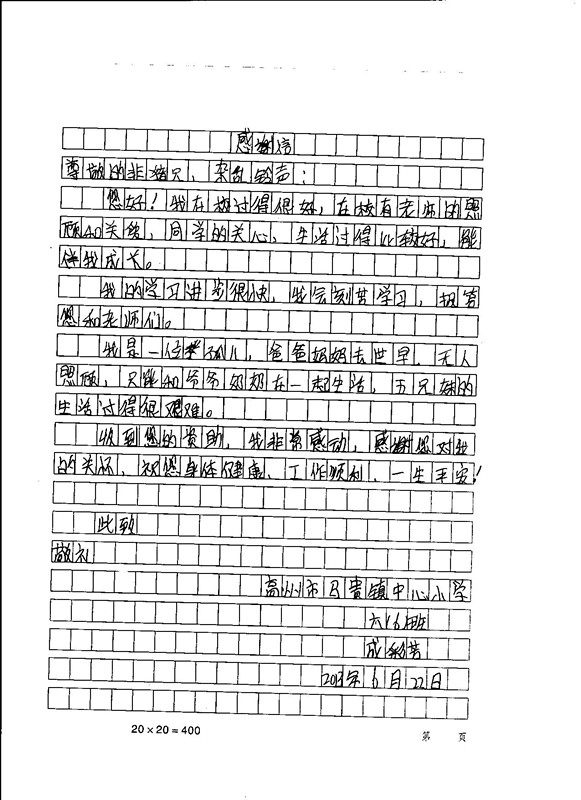 感谢信
尊敬的非猪只，杂乱铃声：
您好！我在校过得很好，在校有老师的照
顾和关给，同学的关心，生活过得比较好，能
伴我成长。
我的学习进步很快，我会刻苦学习，报答
您和老师们。
我是一位孤儿，爸爸妈妈去世早，无人
照顾，只能和爷爷奶奶在一起生活，五兄妹的
生活过得很艰难。
收到您的资助，我非常感动，感谢您对我
的关怀，祝您身体健康、工作顺利，一生平安！
此致
敬礼
高州市马贵镇中心小学
六(6)班
成彩芳
2013年6月22日
20×20=400
第 页